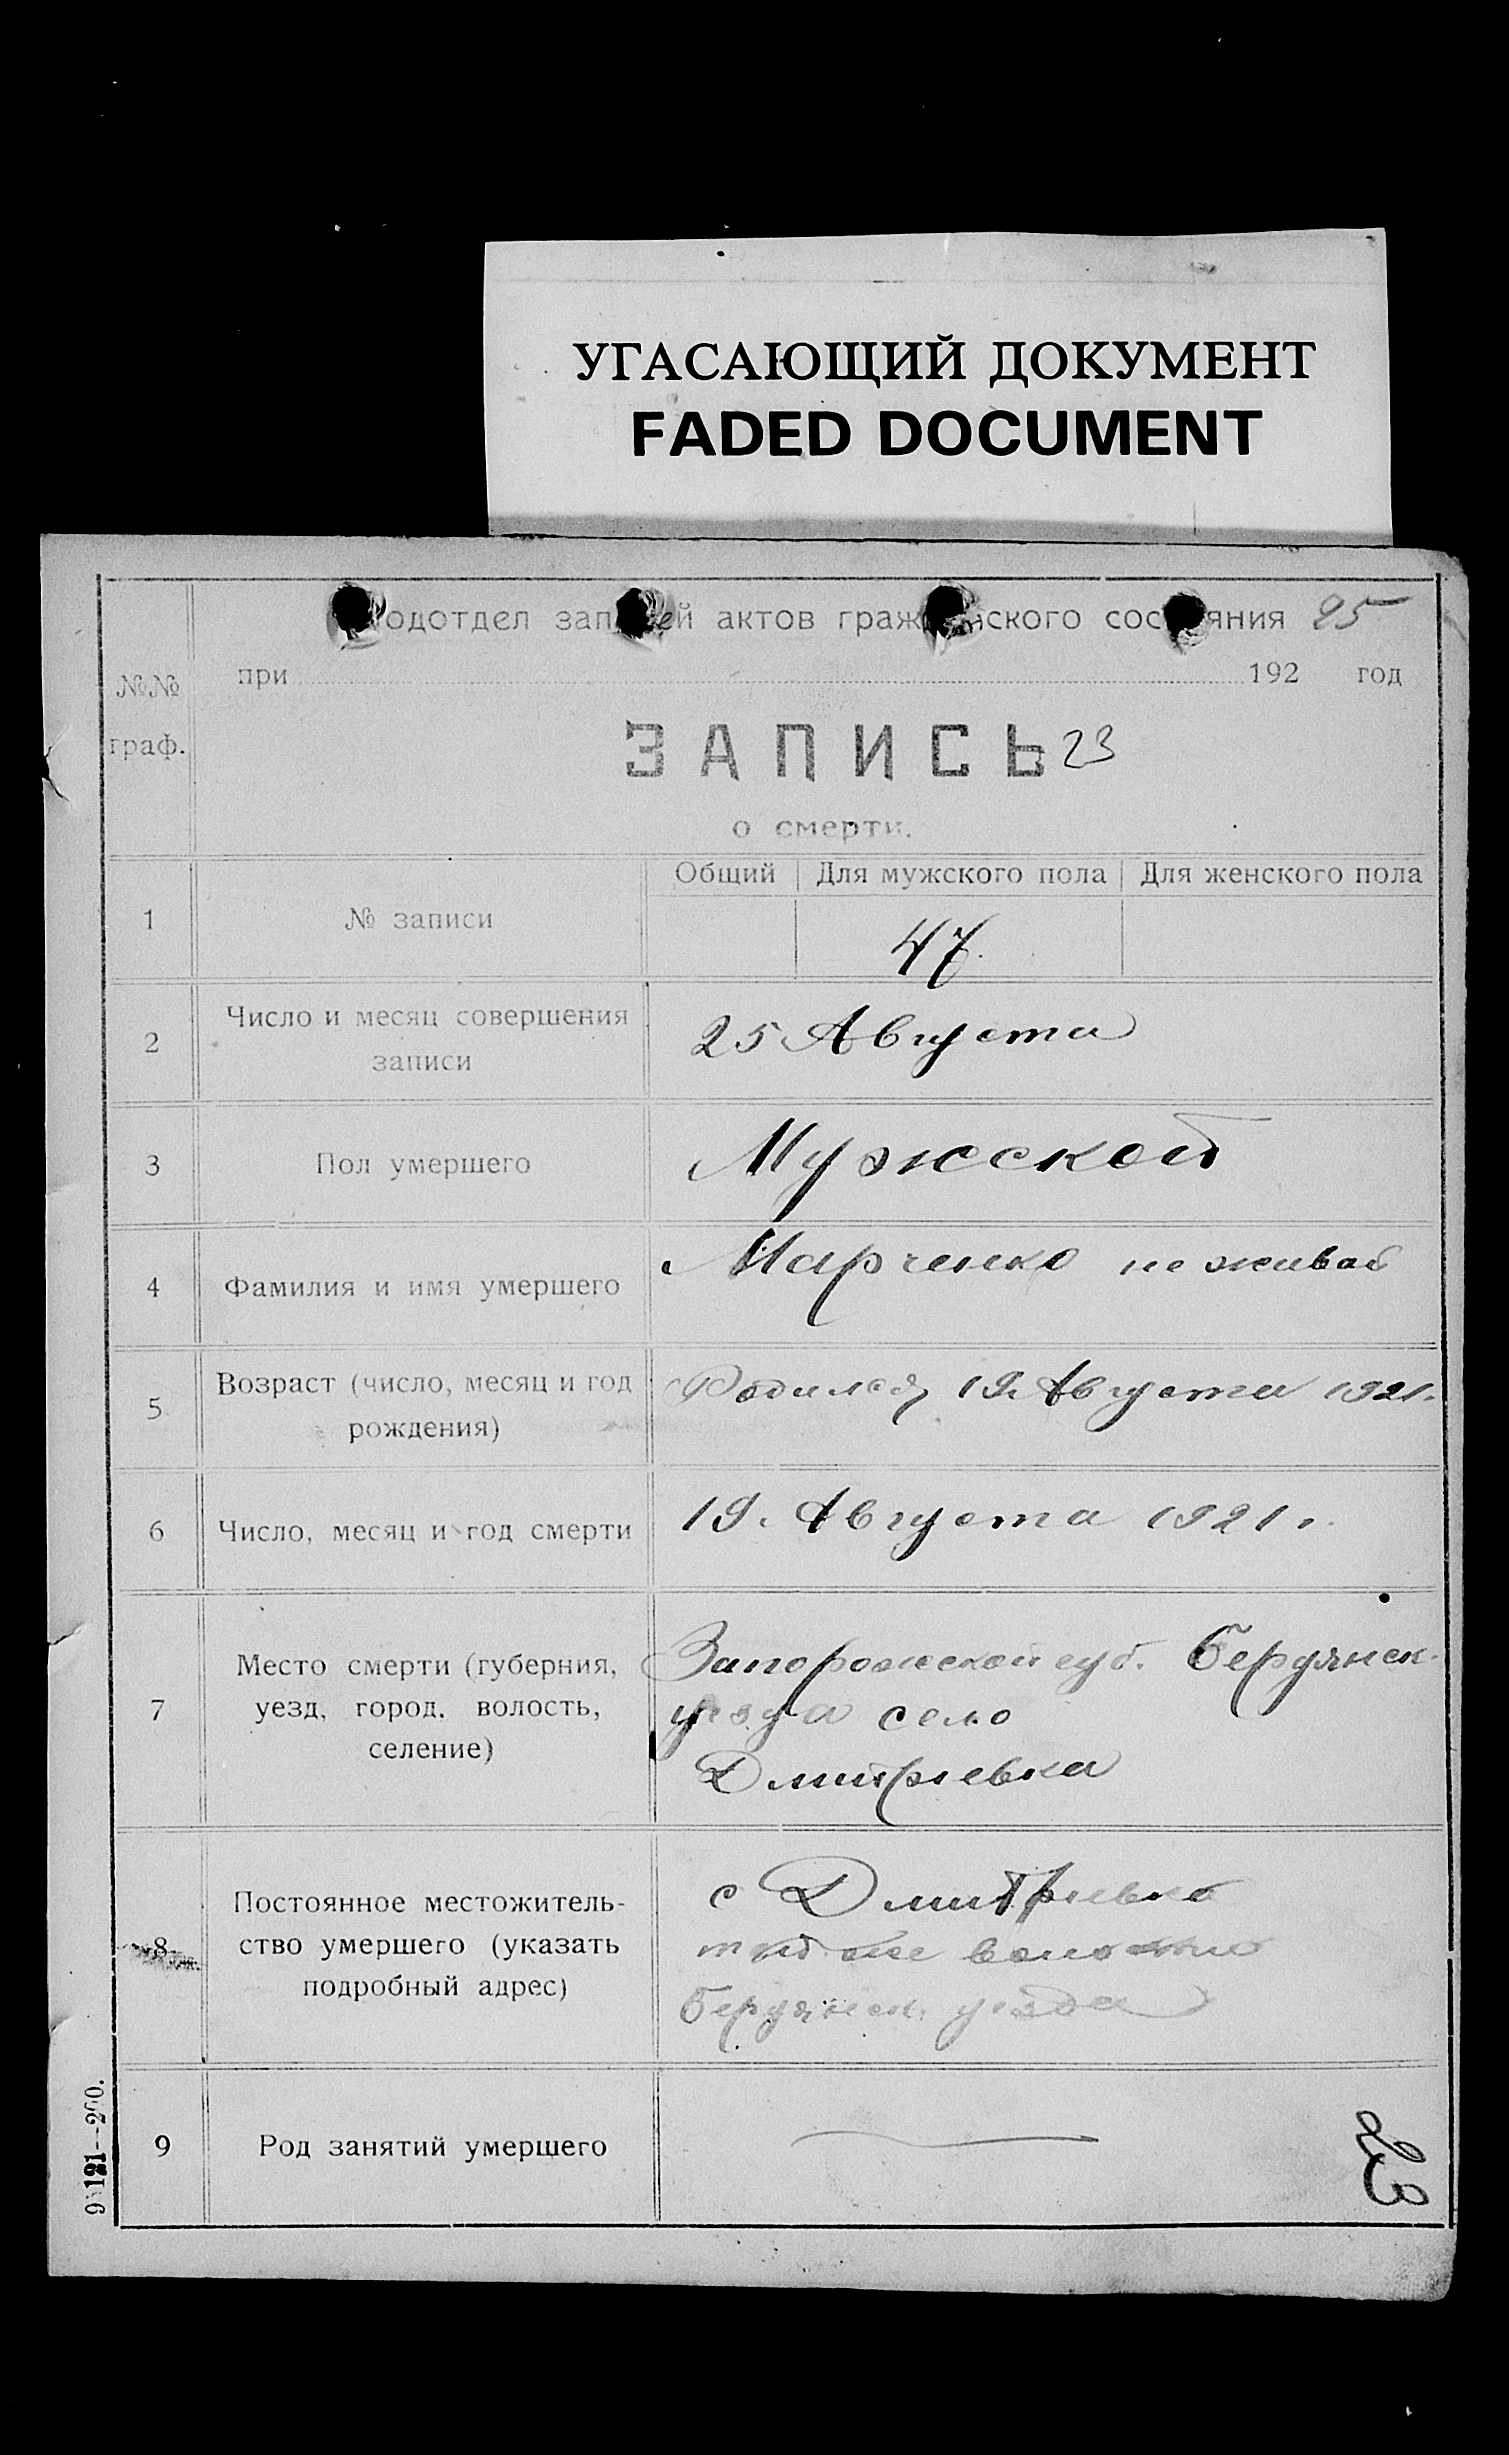 УГАСАЮЩИЙ ДОКУМЕНТ
FADED DOCUMENT
№№
граф.
Подотдел записей актов гражданского состояния 25
при 192 год
ЗАПИСЬ 23
о смерти.
Общий Для мужского пола Для женского пола
1 № записи 47.
2 Число и месяц совершения
записи
25 Августа
3 Пол умершего Мужеской
4 Фамилия и имя умершего Марченко не живой
5 Возраст (число, месяц и год
рождения)
Родился 19. Августа 1921.
6 Число, месяц и год смерти 19. Августа 1921 г.
7 Место смерти (губерния,
уезд, город, волость,
селение)
Запорожской губ. Бердянск.
уезда село
Дмитриевка
8 Постоянное местожитель-
ство умершего (указать
подробный адрес)
с Дмитриевка
той же волости
Бердянск. уезда
9 Род занятий умершего
23